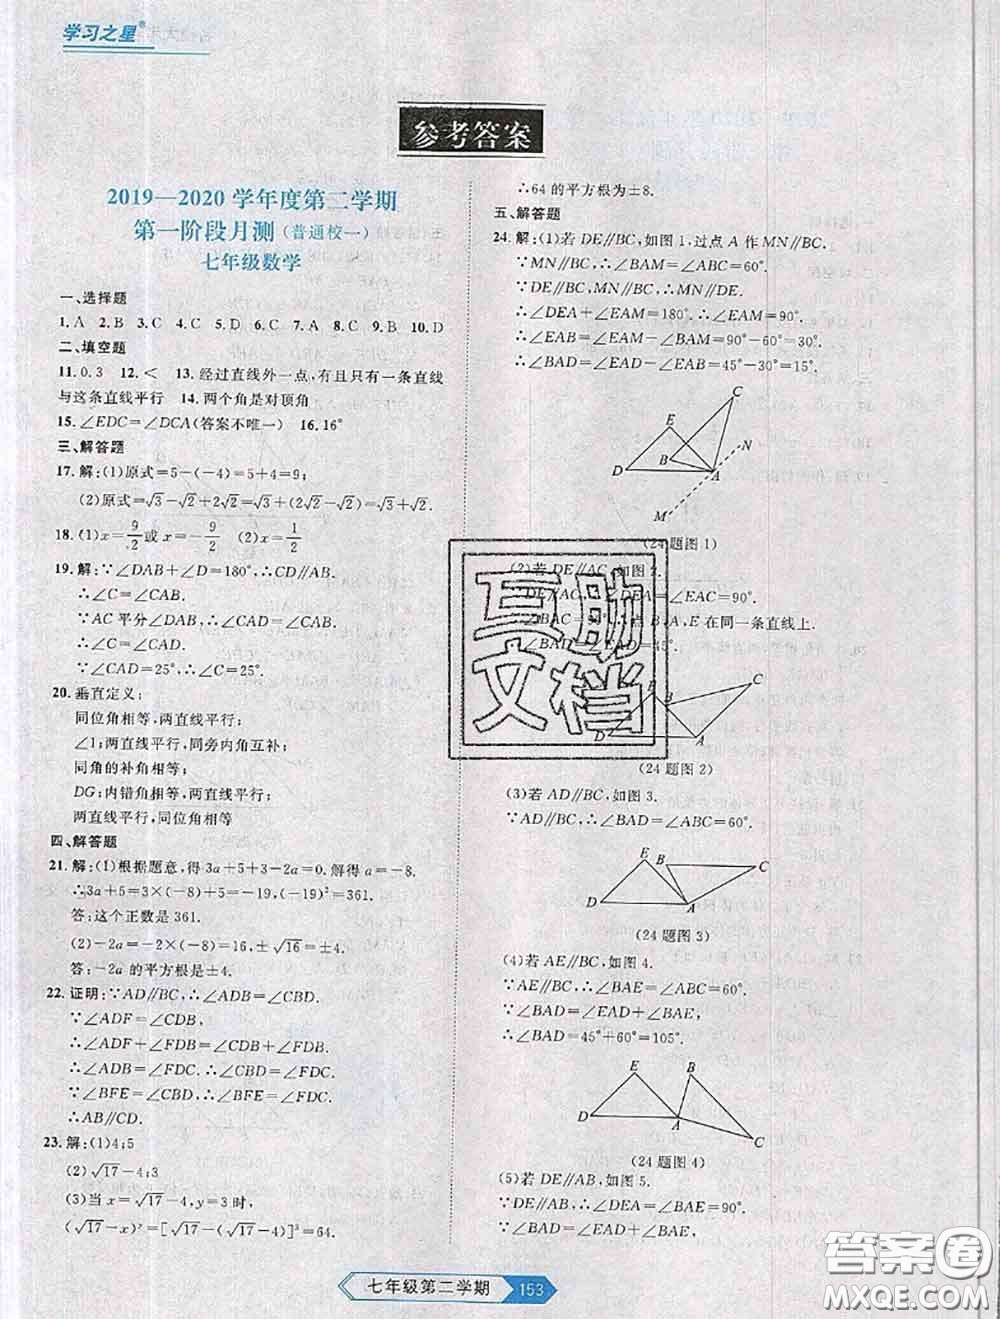 学习之星®
参考答案
2019—2020 学年度第二学期
第一阶段月测(普通校一)
七年级数学
一、选择题
1. A 2. B 3. C 4. C 5. D 6. C 7. A 8. C 9. B 10. D
二、填空题
11. 0.3 12. < 13. 经过直线外一点,有且只有一条直线
与这条直线平行 14. 两个角是对顶角
15. ∠EDC=∠DCA(答案不唯一) 16. 16°
三、解答题
17. 解:(1)原式=5-(-4)=5+4=9;
(2)原式=√3-√2+2√2=√3+(2√2-√2)=√3+√2.
18. (1)x=9/2或x=-9/2 (2)x=1/2
19. 解:∵∠DAB+∠D=180°,∴CD∥AB.
∴∠C=∠CAB.
∵AC平分∠DAB,∴∠CAD=∠CAB.
∴∠C=∠CAD.
∵∠CAD=25°,∴∠C=25°.
20. 垂直定义;
同位角相等,两直线平行;
∠1;两直线平行,同旁内角互补;
同角的补角相等;
DG;内错角相等,两直线平行;
两直线平行,同位角相等
四、解答题
21. 解:(1)根据题意,得3a+5+3-2a=0. 解得a=-8.
∴3a+5=3×(-8)+5=-19,(-19)²=361.
答:这个正数是361.
(2)-2a=-2×(-8)=16,±√16=±4.
答:-2a的平方根是±4.
22. 证明:∵AD∥BC,∴∠ADB=∠CBD.
∵∠ADF=∠CDB,
∴∠ADF+∠FDB=∠CDB+∠FDB.
∴∠ADB=∠FDC.∴∠CBD=∠FDC.
∵∠BFE=∠CBD,∴∠BFE=∠FDC.
∴AB∥CD.
23. 解:(1)4;5
(2)√17-4;3
(3)当x=√17-4,y=3时,
(√17-x)ʸ=[√17-(√17-4)]³=64.
∴64的平方根为±8.
五、解答题
24. 解:(1)若DE∥BC,如图1,过点A作MN∥BC.
∵MN∥BC,∴∠BAM=∠ABC=60°.
∵DE∥BC,MN∥BC,∴DE∥MN.
∴∠DEA+∠EAM=180°.∴∠EAM=90°.
∴∠EAB=∠EAM-∠BAM=90°-60°=30°.
∴∠BAD=∠EAD-∠EAB=45°-30°=15°.
C
E
B
N
D
A
M
(24题图1)
(2)若DE∥AC,如图2.
∠EAC=90°.
E在同一条直线上.
∠BAD=∠EAD=45°.
C
E
B
D
A
(24题图2)
(3)若AD∥BC,如图3.
∵AD∥BC,∴∠BAD=∠ABC=60°.
E
B
C
D
A
(24题图3)
(4)若AE∥BC,如图4.
∵AE∥BC,∴∠BAE=∠ABC=60°.
∵∠BAD=∠EAD+∠BAE,
∴∠BAD=45°+60°=105°.
E
B
D
A
C
(24题图4)
(5)若DE∥AB,如图5.
∵DE∥AB,∴∠DEA=∠BAE=90°.
∵∠BAD=∠EAD+∠BAE,
互助
文档
七年级第二学期 153
答案圈
MXQE.COM